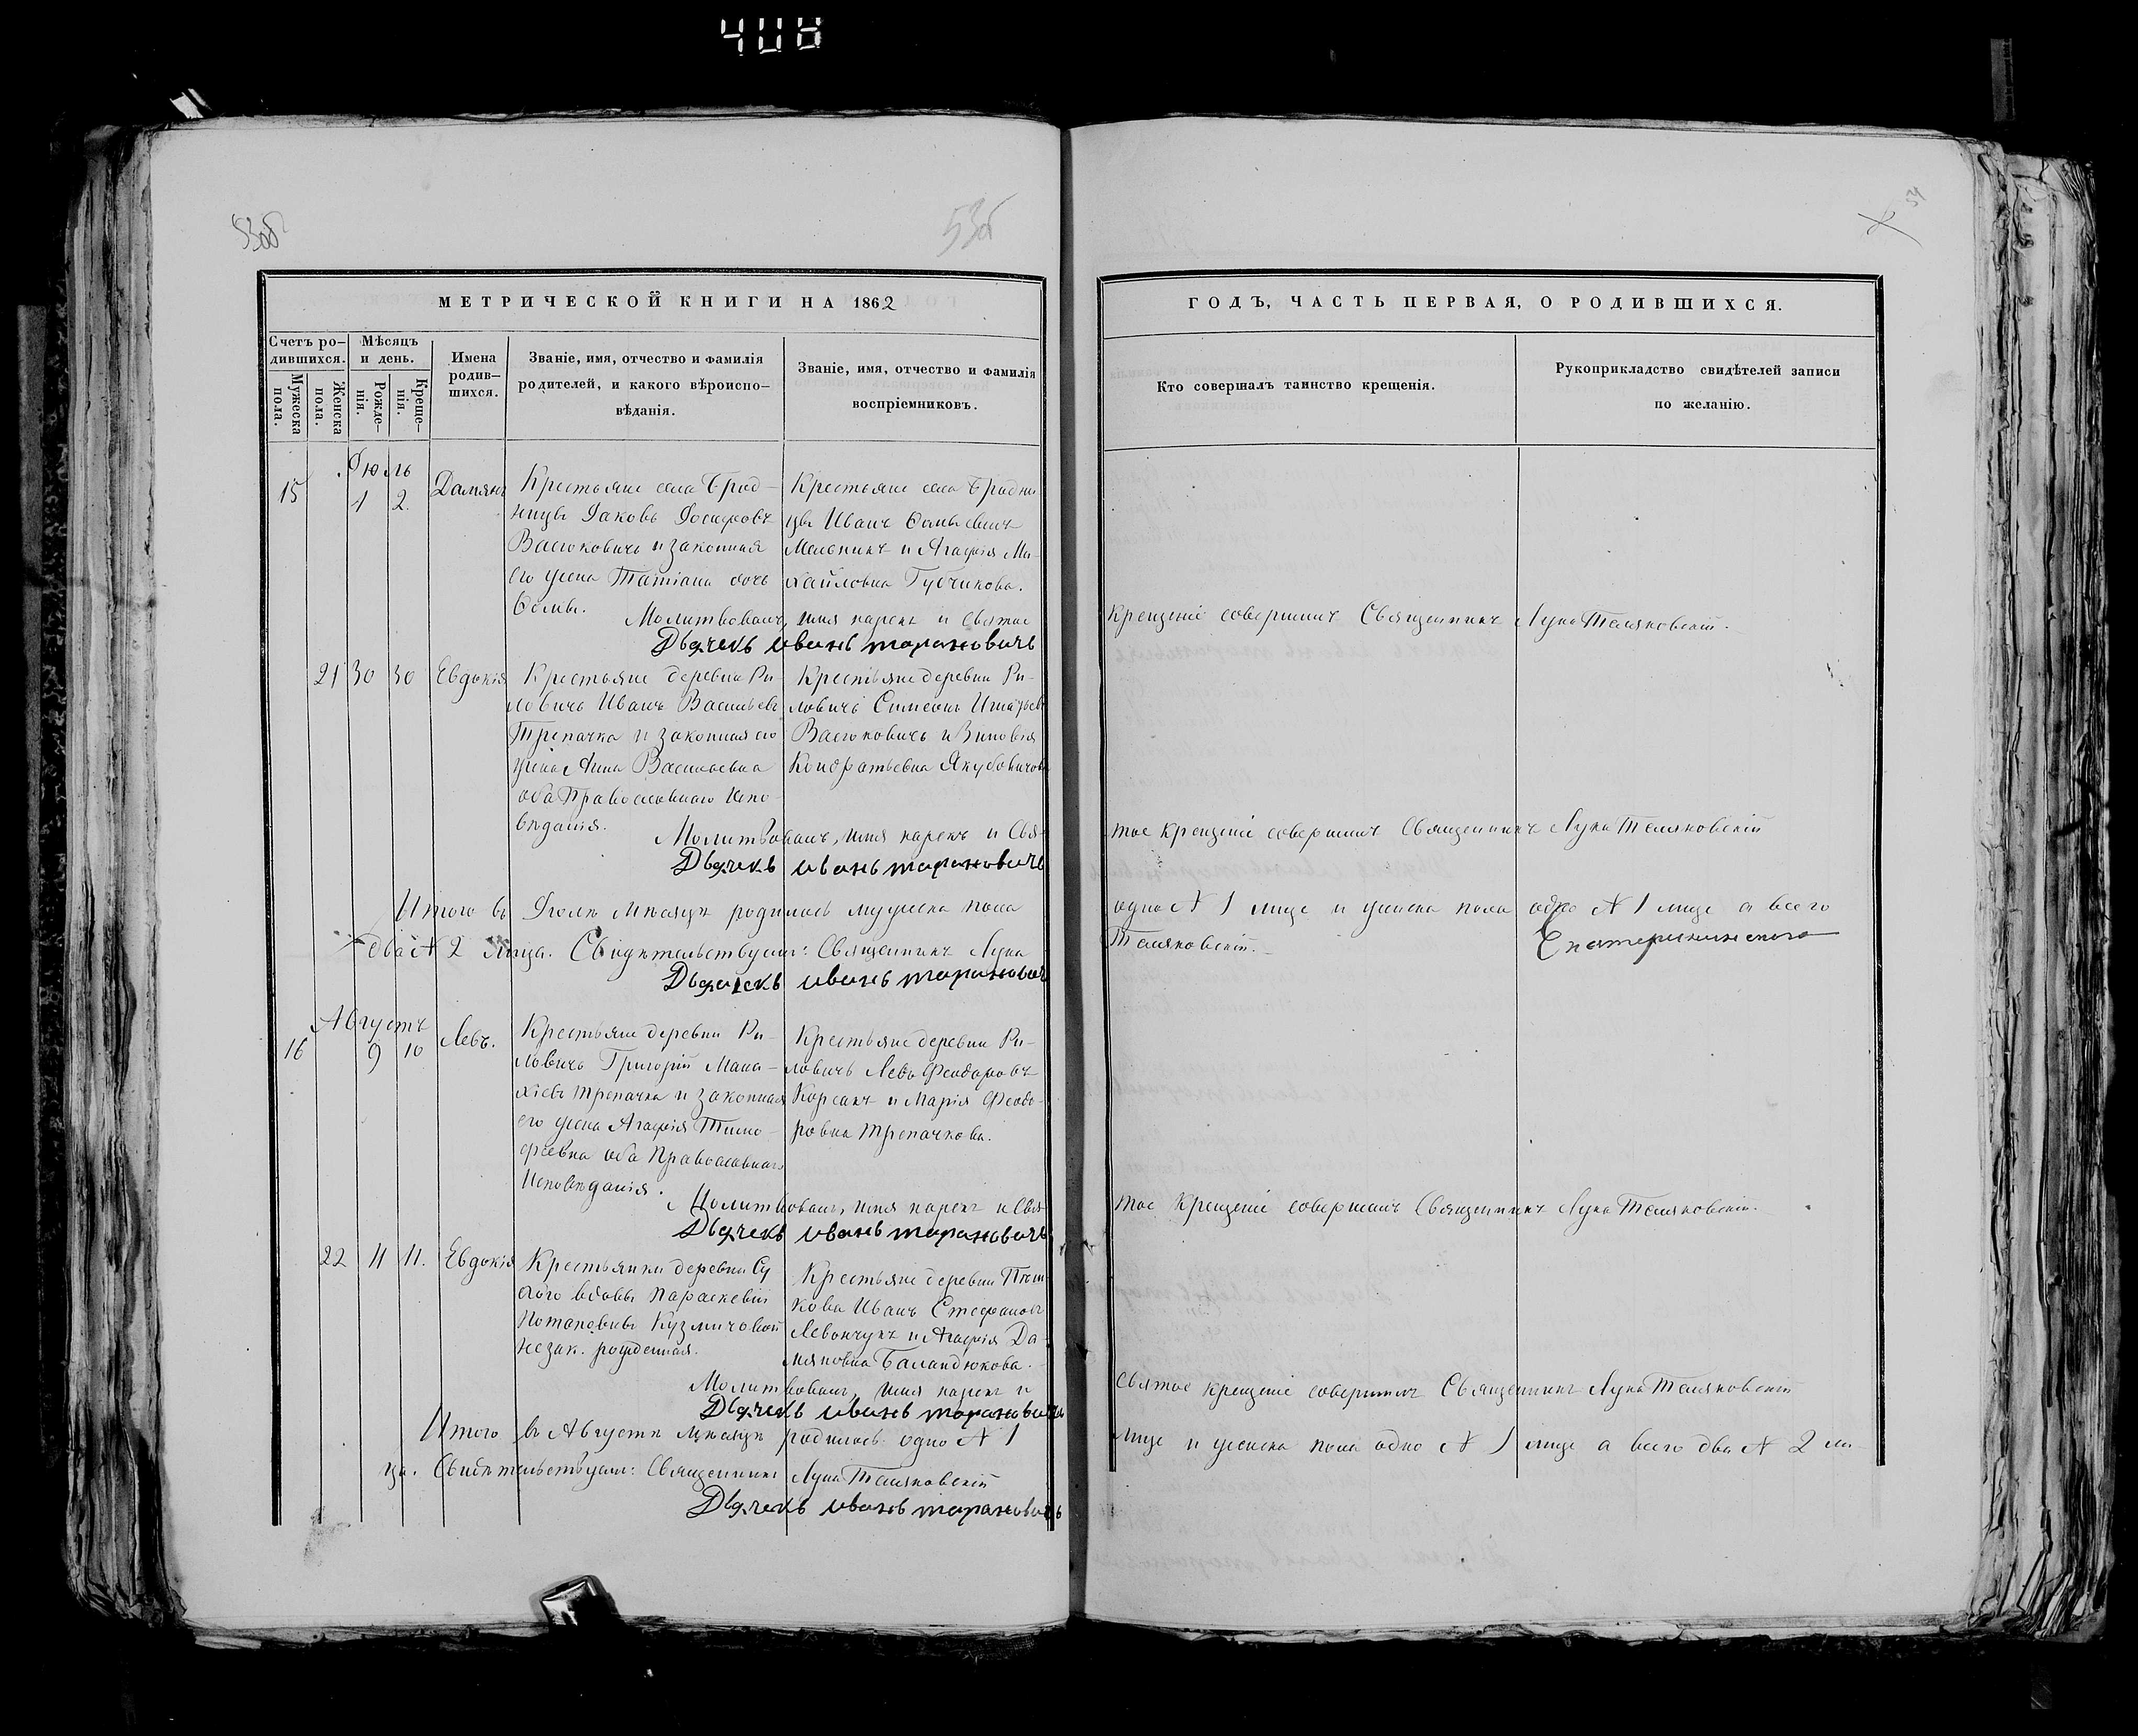 408
53об
53б
54
МЕТРИЧЕСКОЙ КНИГИ НА 1862
ГОДЪ, ЧАСТЬ ПЕРВАЯ, О РОДИВШИХСЯ.
Счетъ ро-
дившихся.
Мужеска пола.
Женска пола.
Мѣсяцъ
и день.
Рожде-
нія.
Креще-
нія.
Имена
родив-
шихся.
Званіе, имя, отчество и фамилія
родителей, и какого вѣроиспо-
вѣданія.
Званіе, имя, отчество и фамилія
воспріемниковъ.
Кто совершалъ таинство крещенія.
Рукоприкладство свидѣтелей записи
по желанію.
Іюль
15 1 2. Даміянъ
Крестьяне села Брод-
ницы Іаковъ Іосифовъ
Васюковичъ и законная
его жена Татіана дочь
Фомы.
Крестьяне села Бродни
цы Иванъ
Мельникъ и Агафія Ми-
хайловна Губчикова.
Молитвовалъ, имя нарекъ и святое
крещеніе совершилъ Священникъ Лука Теляковскій.
Дьячекъ иванъ тарановичъ
21 30 30 Евдокія
Крестьяне деревни Ри-
ловичъ Иванъ Васильевъ
Трепачка и законная его
жена Анна Васильевна
оба Православнаго Испо-
вѣданія.
Крестьяне деревни Ри-
ловичъ Симеонъ Игнатьевъ
Васюковичъ и Зиновія
Кондратьевна Якубовичова
Молитвовалъ, имя нарекъ и Свя-
тое крещеніе совершилъ Священникъ Лука Теляковскій
Дьячекъ иванъ тарановичъ
Итого въ Іюлѣ мѣсяцѣ родилось мужеска пола
одно № 1 лице и женска пола одно № 1 лице а всего
два № 2 лица. Свидѣтельствуемъ: Священникъ Лука
Теляковскій.
Дьячекъ иванъ тарановичъ
Августъ
16 9 10 Левъ.
Крестьяне деревни Ри-
ловичъ Григорій Мала-
хіевъ Трепачка и законная
его жена Агафія Тимо-
феевна оба Православнаго
Исповѣданія.
Крестьяне деревни Ри-
ловичъ Левъ Феодоровъ
Корсакъ и Марія Феодо-
ровна Трепачкова.
Молитвовалъ, имя нарекъ и Свя-
тое крещеніе совершилъ Священникъ Лука Теляковскій.
Дьячекъ иванъ тарановичъ
22 11 11. Евдокія
Крестьянки деревни Су
хого вдовы Параскевіи
Потаповны Кузмичовой
незак. рожденная.
Крестьяне деревни
Иванъ Стефановъ
Левончукъ и Агафія Да-
міяновна Баландюкова.
Молитвовалъ, имя нарекъ и
Святое крещеніе совершилъ Священникъ Лука Теляковскій
Дьячекъ иванъ тарановичъ
Итого въ Августѣ мѣсяцѣ родилось одно № 1
лице и женска пола одно № 1 лице а всего два № 2 ли-
ца. Свидѣтельствуемъ: Священникъ Лука Теляковскій
Дьячекъ иванъ тарановичъ